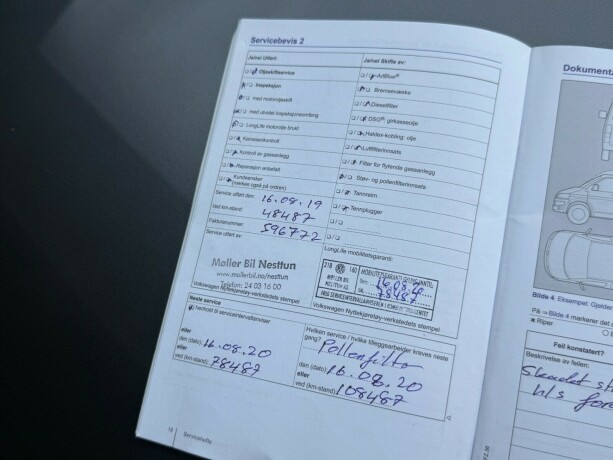 Servicebevis 2
Ja/nei Utført:
Ja/nei Skifte av:
Oljeskiftservice
Inspeksjon
med motoroljeskift
med utvidet inspeksjonsomfang
LongLife motorolje brukt
Karosserikontroll
Kontroll av gassanlegg
Reparasjon anbefalt
Kundeønsker
(merkes også på ordren)
AdBlue®
Bremsevæske
Dieselfilter
DSG®, girkasseolje
Haldex-kobling: olje
Luftfilterinnsats
Filter for flytende gassanlegg
Støv- og pollenfilterinnsats
Tannrem
Tennplugger
Service utført den: 16.08.19
Ved km-stand: 48487
Fakturanummer: 596772
Service utført av:
Møller Bil Nesttun
www.mollerbil.no/nesttun
Telefon: 24 03 16 00
Volkswagen Nyttekjøretøy-verkstedets stempel
LongLife mobilitetsgaranti:
218 160
MOBILITETSGARANTI GYLDIG INNTIL
78487
Volkswagen Nyttekjøretøy-verkstedets stempel
Neste service
I henhold til serviceintervallvisning
eller
den (dato): 16.08.20
eller
ved (km-stand): 78487
Hvilken service / hvilke tilleggsarbeider kreves neste
gang? Pollenfilter
den (dato): 16.08.20
eller
ved (km-stand): 108487
18
Servicehefte
Dokumenta
Bilde 4 Eksempel:
På Bilde 4 markerer det
Riper
Feil konstatert?
Beskrivelse av feilen:
Skadet
h/s